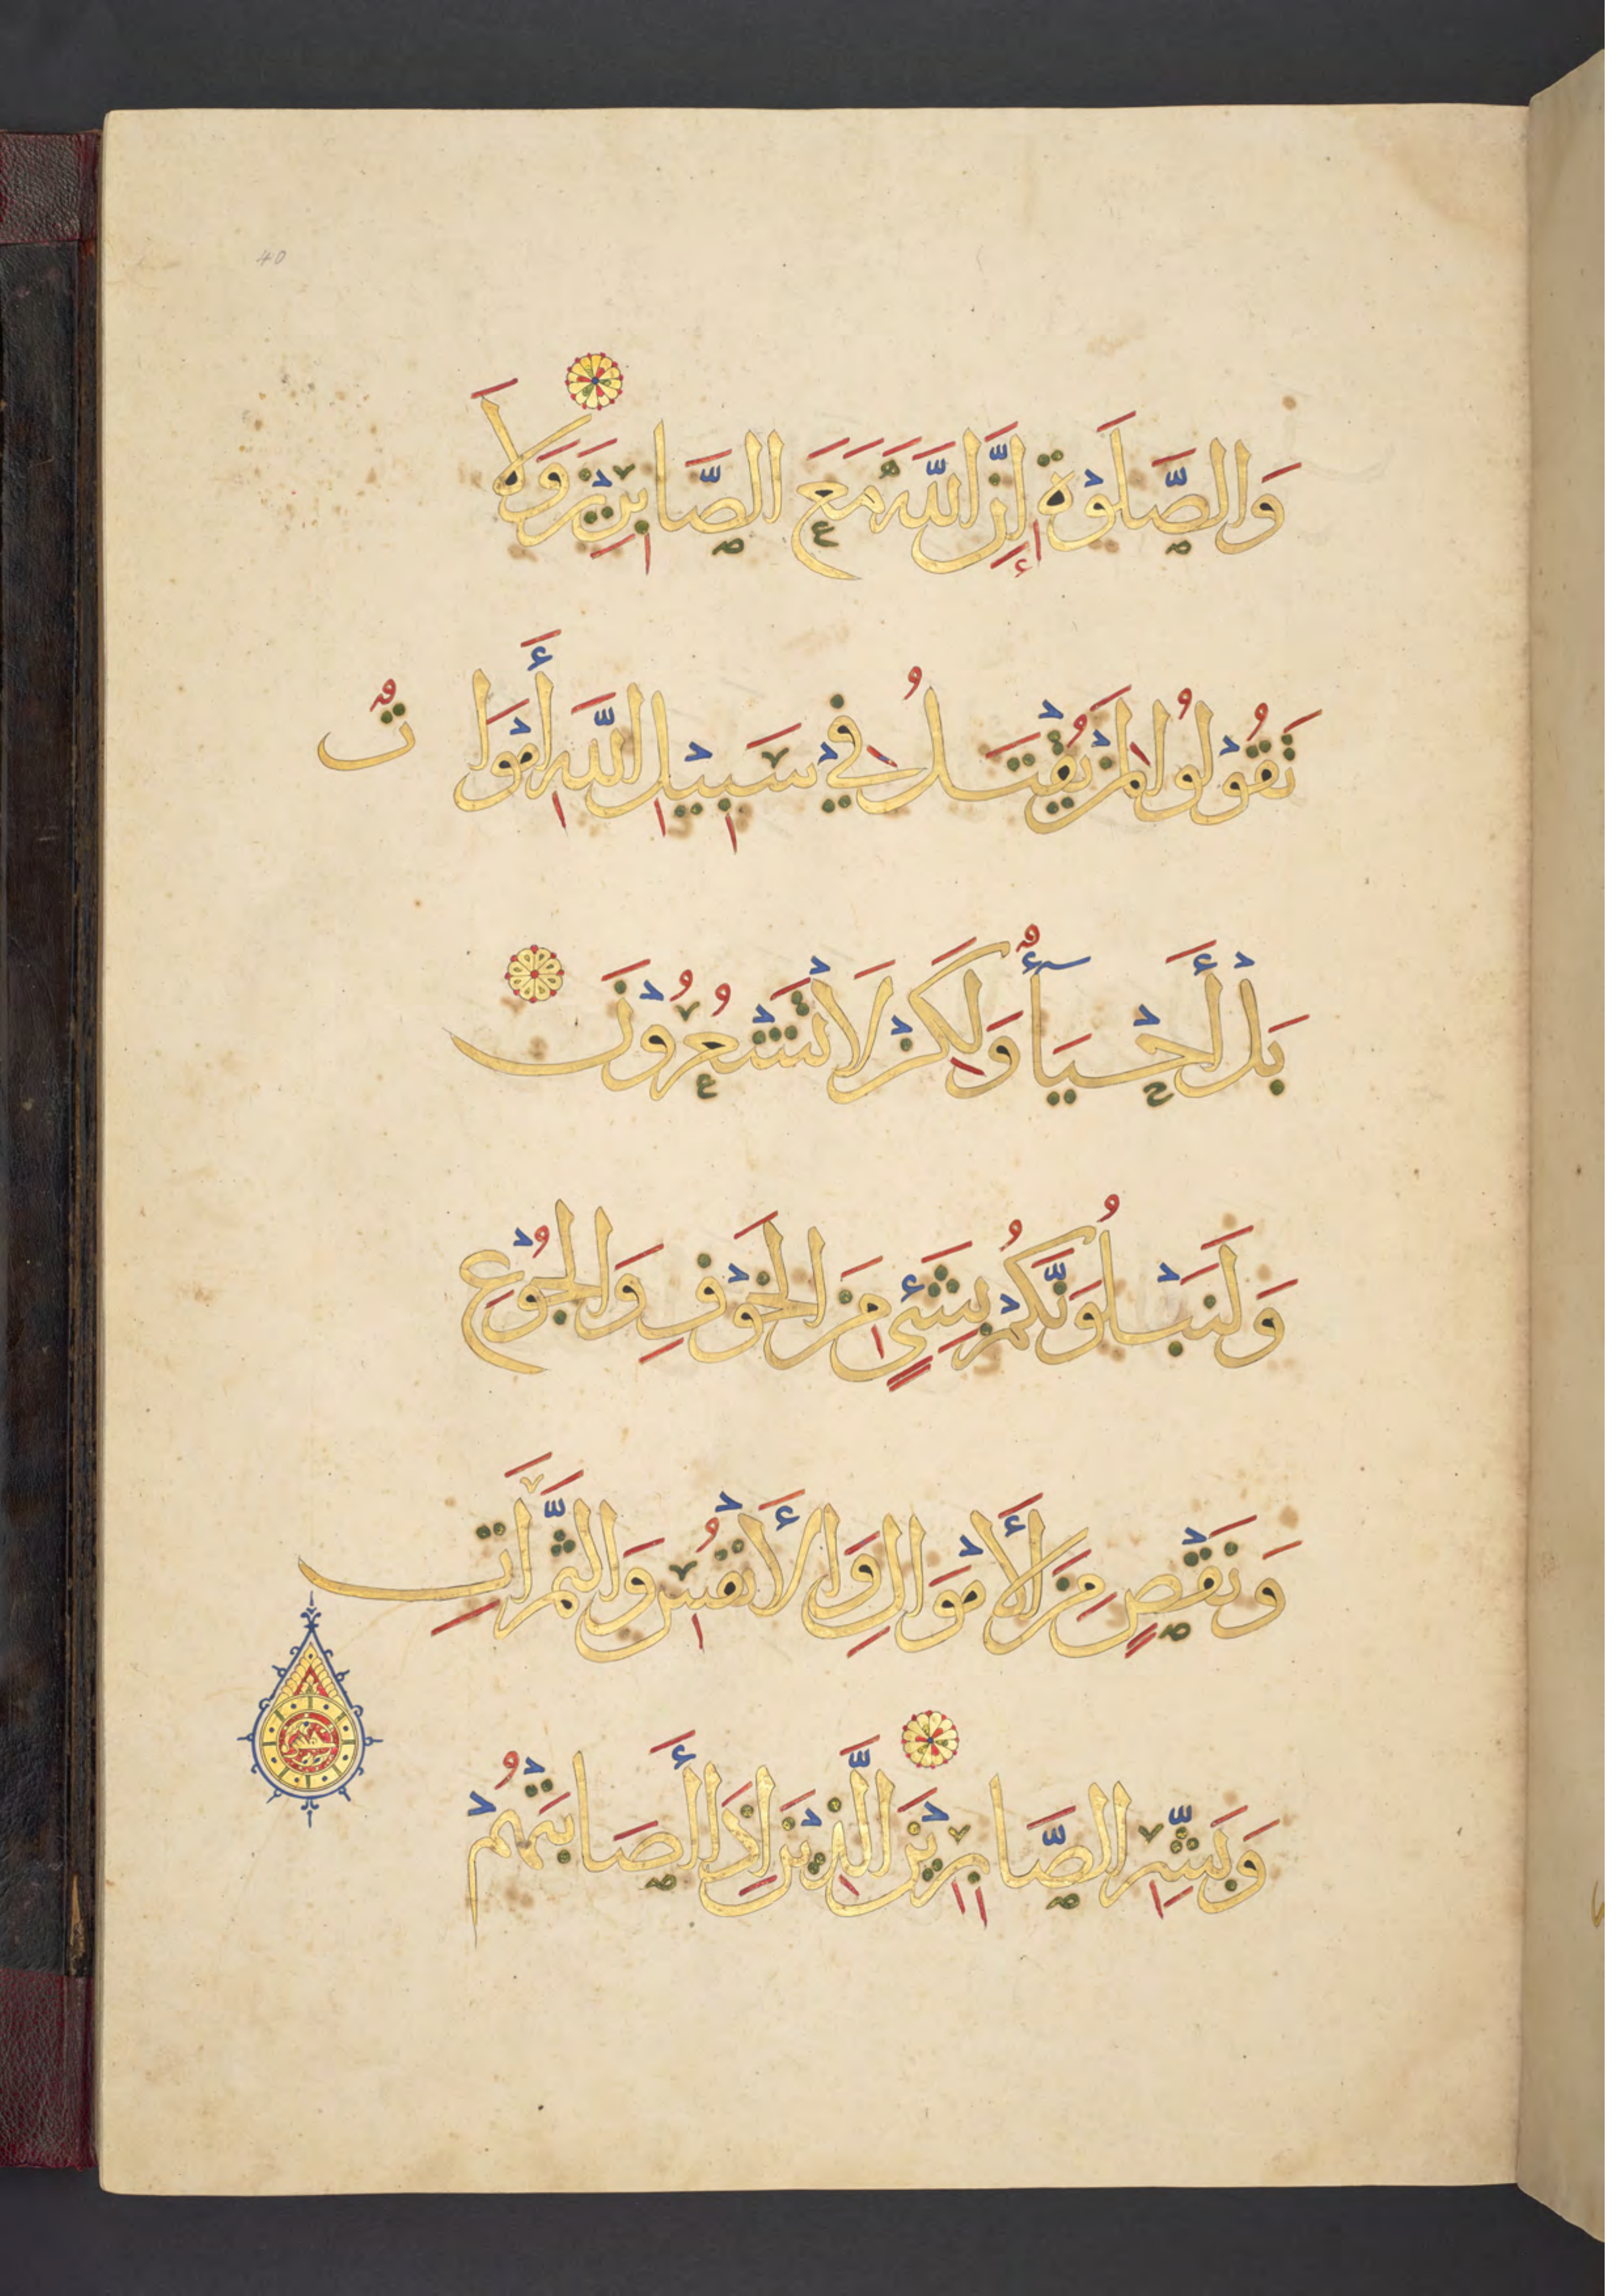 40
وَالصَّلَوٰةِ إِنَّ اللَّهَ مَعَ الصَّابِرِيْنَ وَلَا
تَقُوْلُوْا لِمَنْ يُقْتَلُ فِيْ سَبِيْلِ اللَّهِ أَمْوَاتٌ
بَلْ أَحْيَاءٌ وَلَكِنْ لَا تَشْعُرُوْنَ
وَلَنَبْلُوَنَّكُمْ بِشَيْءٍ مِنَ الْخَوْفِ وَالْجُوْعِ
وَنَقْصٍ مِنَ الْأَمْوَالِ وَالْأَنْفُسِ وَالثَّمَرَاتِ
وَبَشِّرِ الصَّابِرِيْنَ الَّذِيْنَ إِذَا أَصَابَتْهُمْ